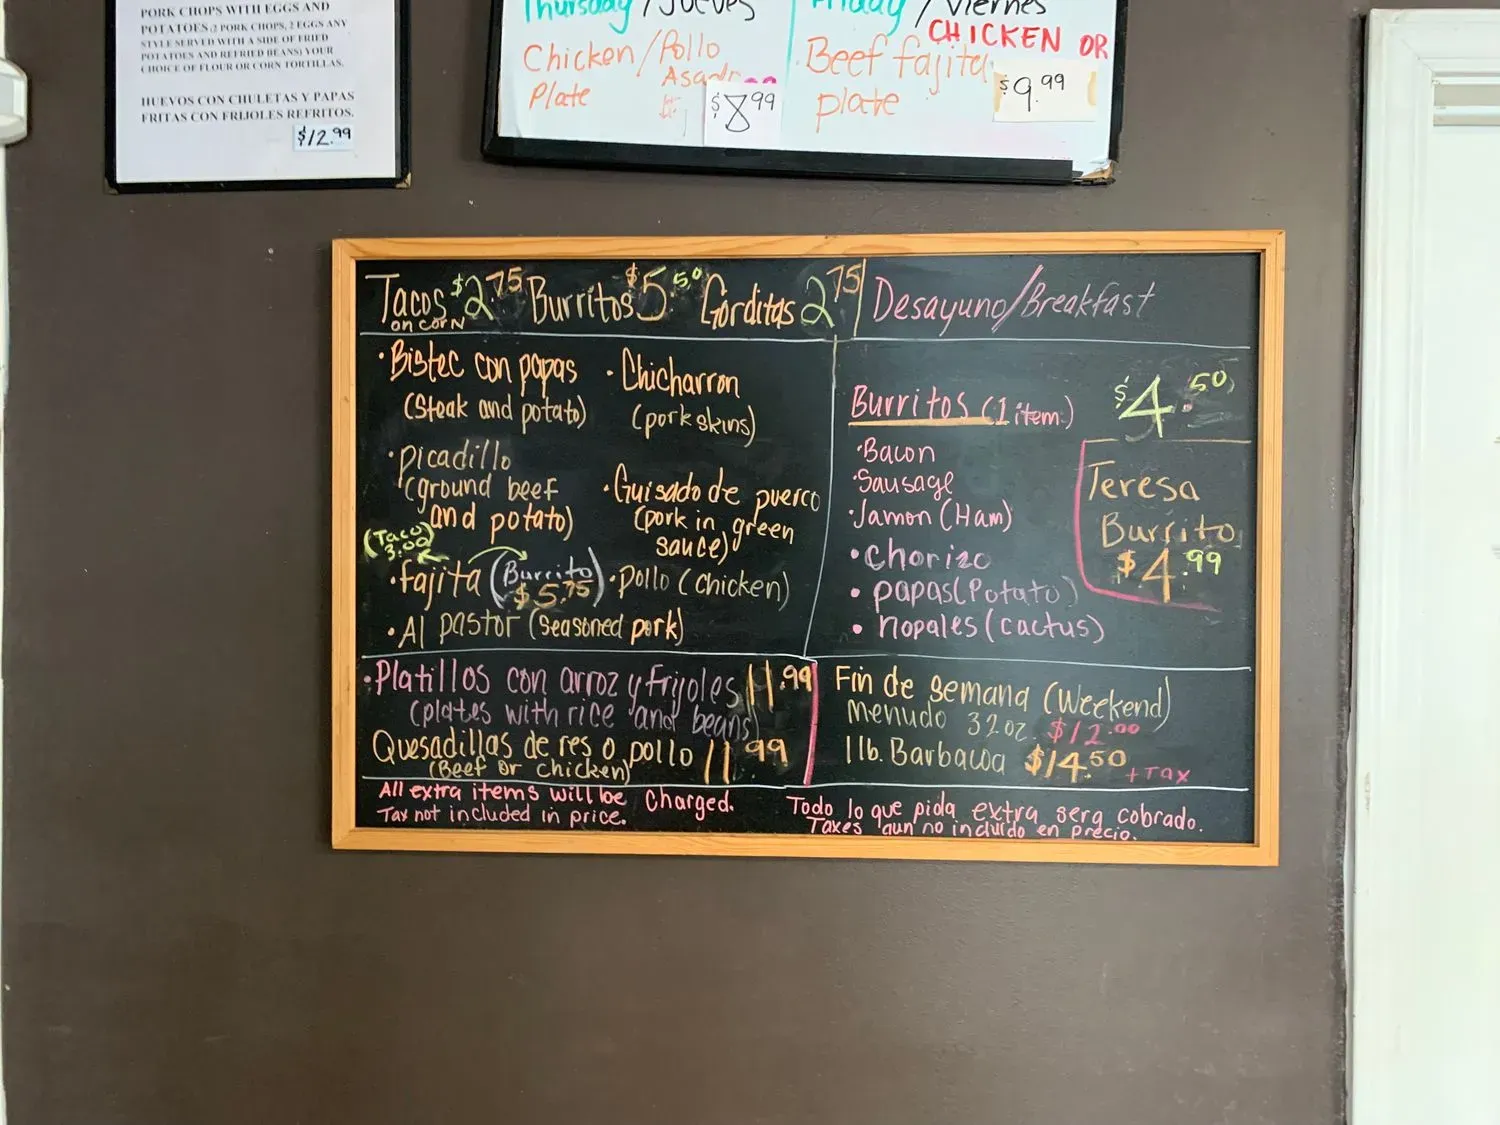 PORK CHOPS WITH EGGS AND
POTATOES (2 PORK CHOPS, 2 EGGS ANY
STYLE SERVED WITH A SIDE OF FRIED
POTATOES AND REFRIED BEANS) YOUR
CHOICE OF FLOUR OR CORN TORTILLAS.
HUEVOS CON CHULETAS Y PAPAS
FRITAS CON FRIJOLES REFRITOS.
$12.99
Thursday/Jueves
Chicken/Pollo
Asado
Plate
$8.99
Friday/Viernes
CHICKEN OR
Beef fajita
plate
$9.99
Tacos $2.75 Burritos $5.50 Gorditas 2.75
on corn
Desayuno/Breakfast
•Bistec con papas
(Steak and potato)
•picadillo
(ground beef
and potato)
(Taco)
3.00
•fajita (Burrito
$5.75)
•Al pastor (seasoned pork)
•Chicharron
(pork skins)
•Guisado de puerco
(pork in green
sauce)
•pollo (chicken)
Burritos (1 item)
$4.50
•Bacon
•Sausage
•Jamon (Ham)
•chorizo
•papas (Potato)
•nopales (cactus)
Teresa
Burrito
$4.99
•Platillos con arroz y frijoles 11.99
(plates with rice and beans)
Quesadillas de res o pollo 11.99
(Beef or chicken)
Fin de semana (Weekend)
Menudo 32oz. $12.00
1 lb. Barbacoa $14.50
+TAX
All extra items will be charged.
Tax not included in price.
Todo lo que pida extra sera cobrado.
Taxes aun no incluido en precio.